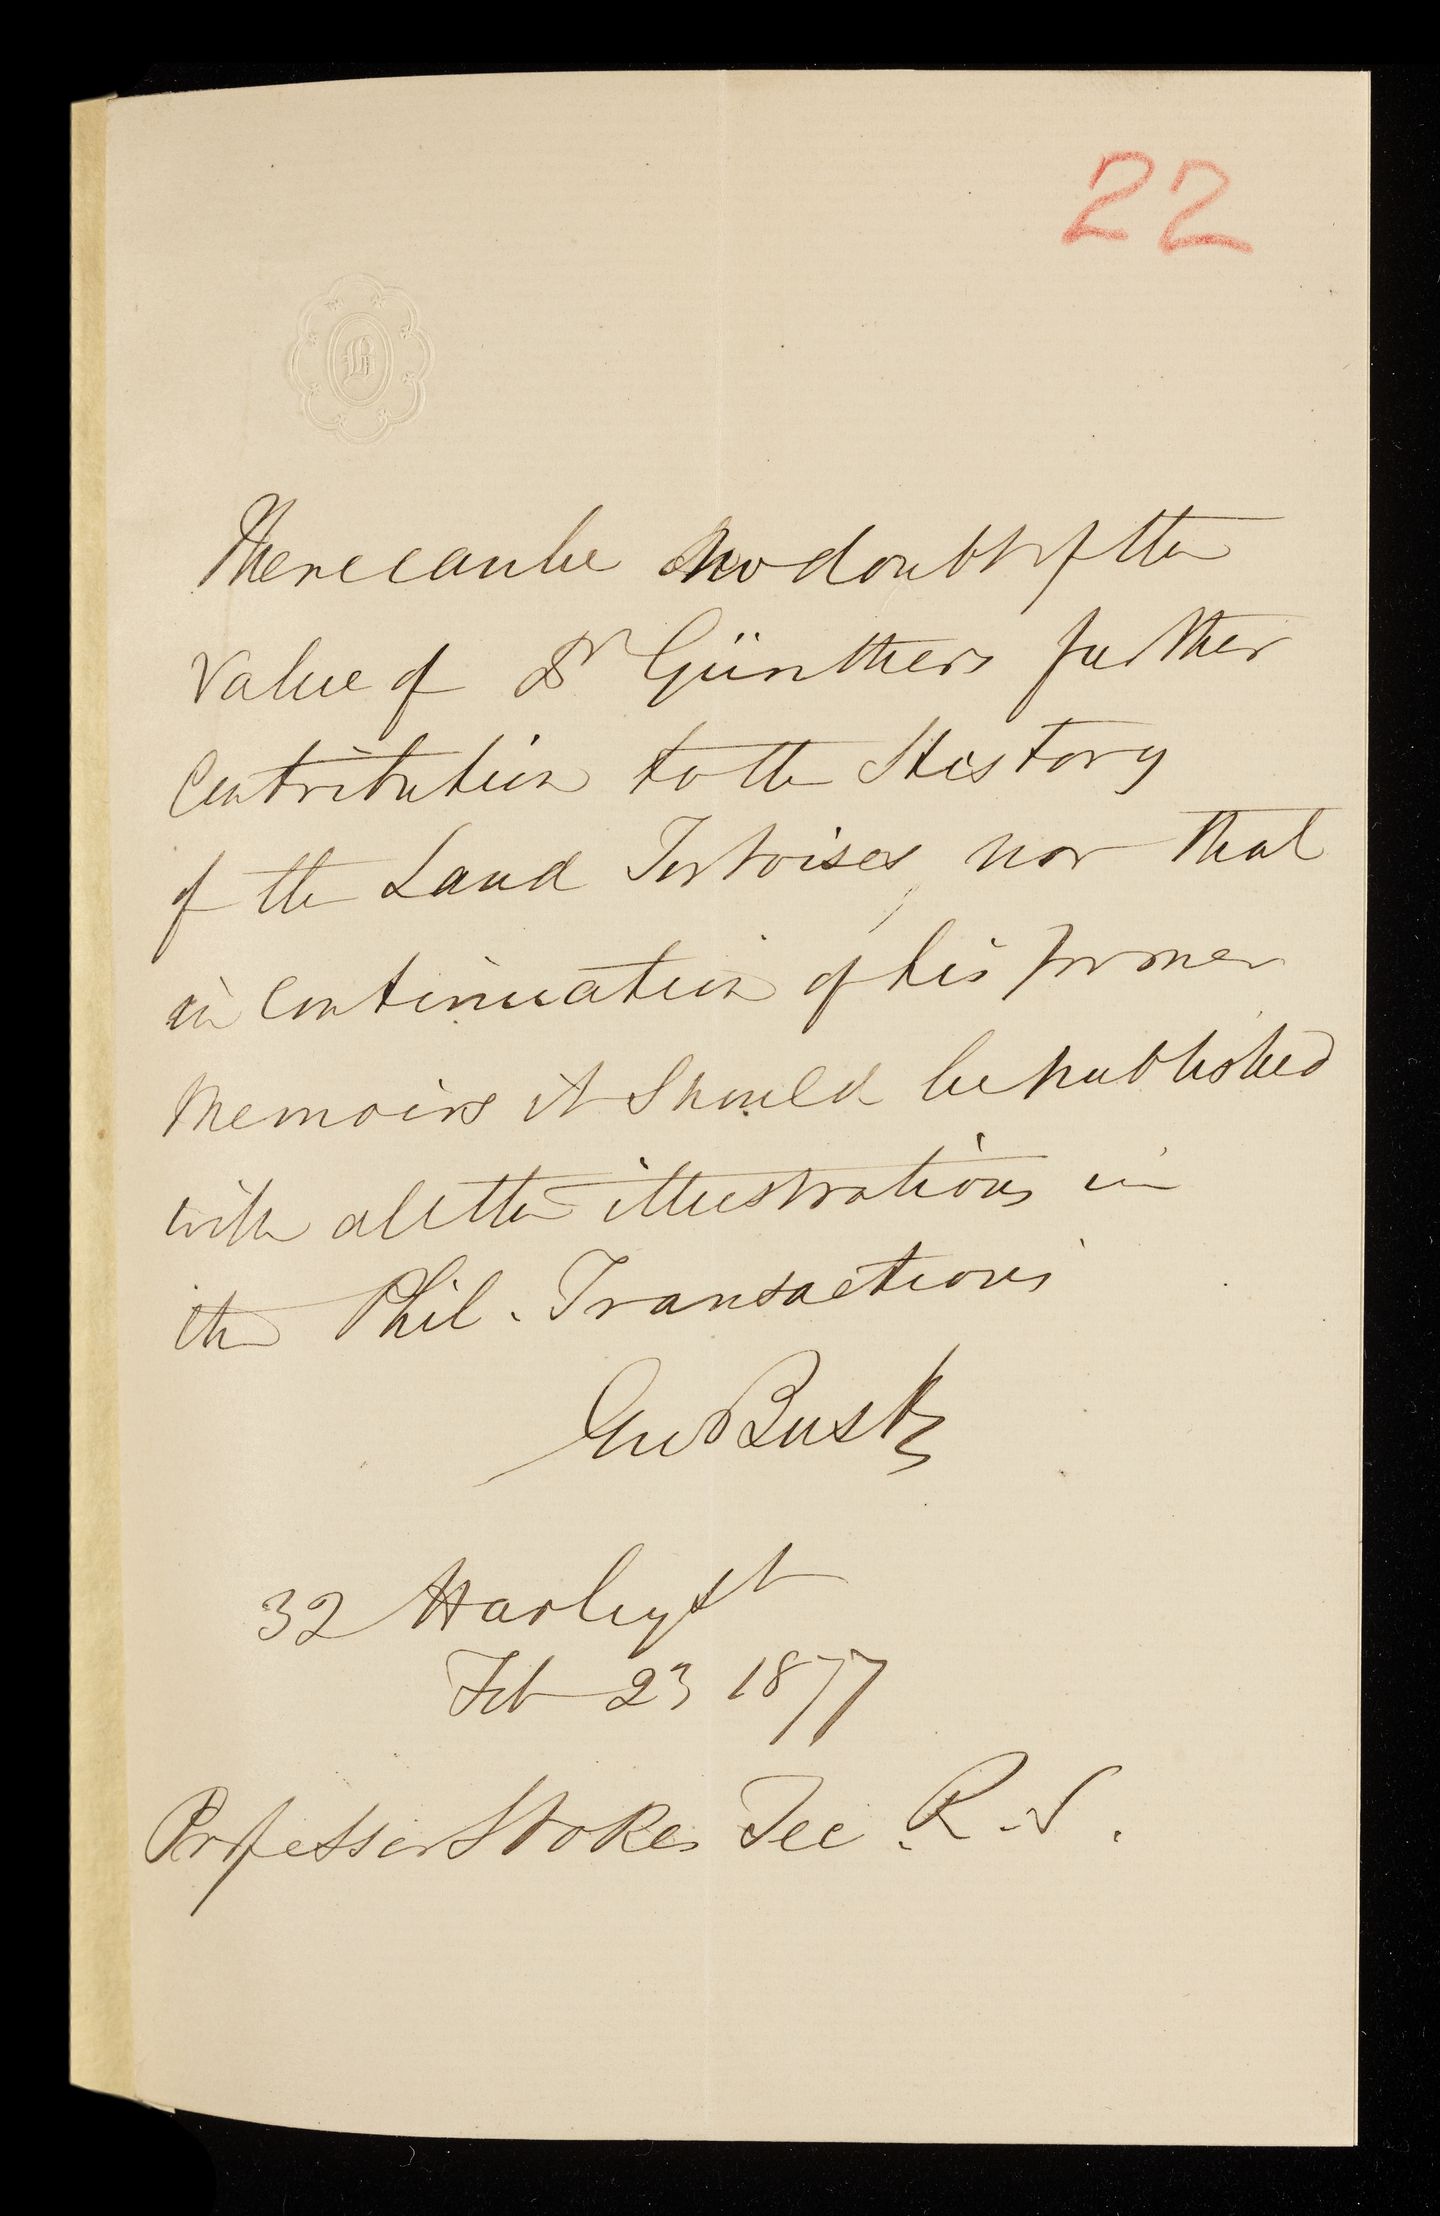 22
B
There can be no doubt of the
value of Dr Günthers further
Contribution to the History
of the Land Tortoises, nor that
in continuation of his former
Memoirs it should be published
with all the illustrations in
the Phil. Transactions
Geo Busk
32 Harley St
Feb 23 1877
Professor Stokes Sec. R.S.